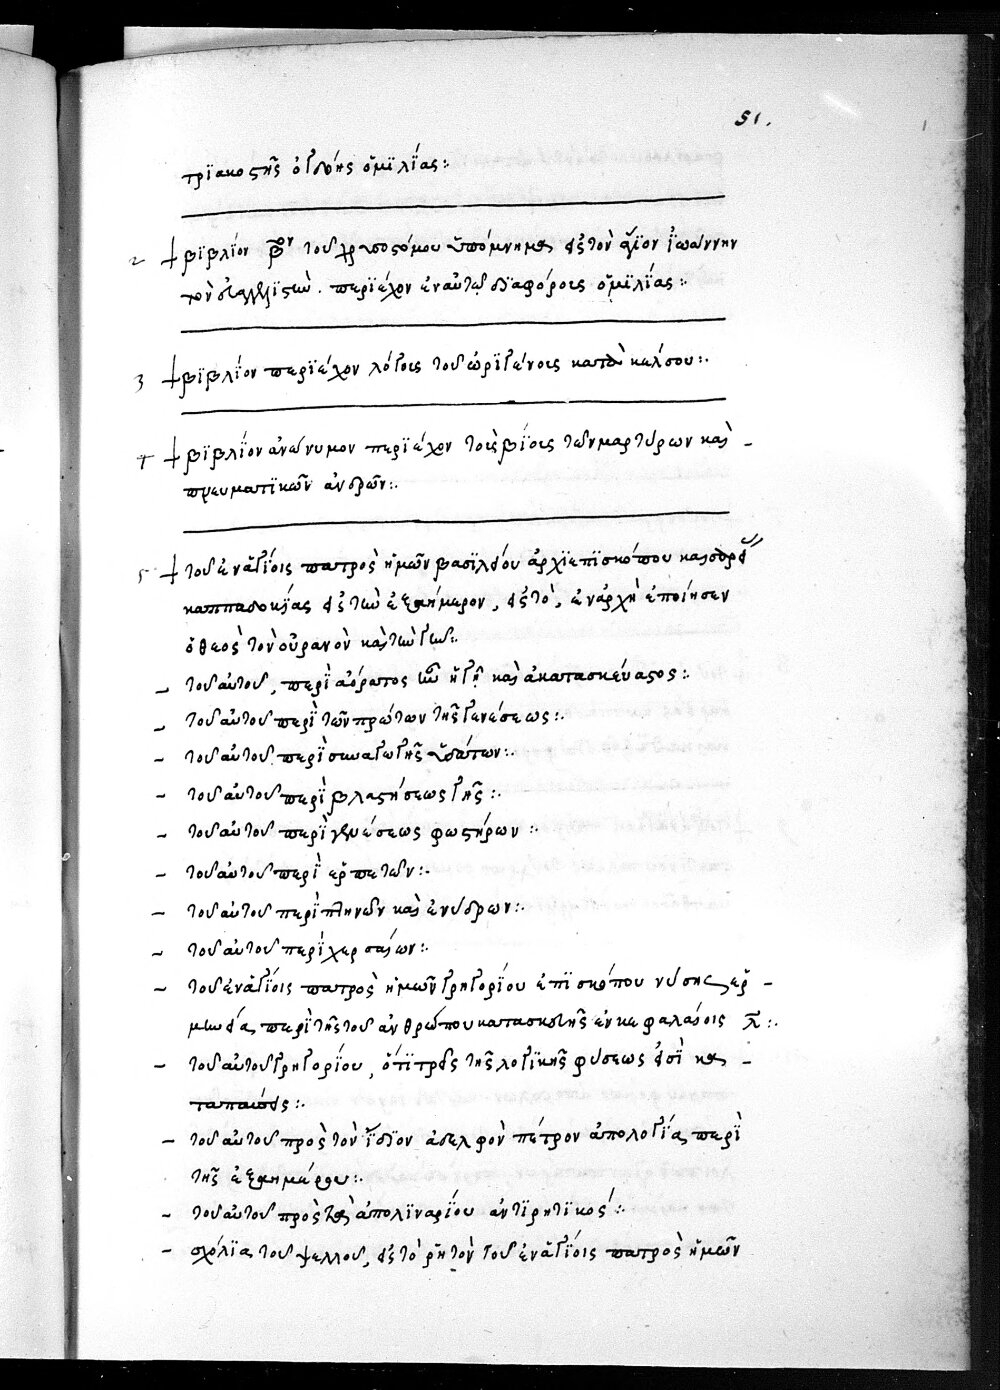 51.
τριακοστῆς ὀγδόης ὁμιλίας:
2 βιβλίον β̅ον τοῦ χρυσοστόμου ὑπόμνημα εἰς τὸν ἅγιον ἰωάννην
τὸν εὐαγγελιστὴν. περιέχον ἐν αὐτῶ διαφόροις ὁμιλίας:
3 βιβλίον περιέχον λόγοις τοῦ ὠριγένοις κατὰ κέλσου:.
4 βιβλίον ἀνώνυμον περιέχον τοὶς βίοις τῶν μαρτύρων καὶ
πνευματικῶν ἀνδρῶν:.
5 τοῦ ἐν ἁγίοις πατρὸς ἡμῶν βασιλείου ἀρχιεπισκόπου καισαρεί
καππαδοκίας εἰς τὴν ἑξαήμερον, εἰς τὸ, ἐν ἀρχῆ ἐποίησεν
ὁ θεὸς τὸν οὐρανὸν καὶ τὴν γῆν:.
τοῦ αὐτοῦ, περὶ ἀόρατος ἦν ἡ γῆ καὶ ἀκατασκεύαστος:
τοῦ αὐτοῦ περὶ τῶν πρώτων τῆς γενέσεως:.
τοῦ αὐτοῦ περὶ συναγωγῆς ὑδάτων:.
τοῦ αὐτοῦ περὶ βλαστήσεως γῆς:.
τοῦ αὐτοῦ περὶ γενέσεως φωστήρων:.
τοῦ αὐτοῦ περὶ ἑρπετῶν:.
τοῦ αὐτοῦ περὶ πτηνῶν καὶ ἐνύδρων:.
τοῦ αὐτοῦ περὶ χερσαίων:.
τοῦ ἐν ἁγίοις πατρὸς ἡμῶν γρηγορίου ἐπισκόπου νύσης ἑρ-
μηνεία περὶ τῆς τοῦ ἀνθρώπου κατασκευῆς ἐν κεφαλαίοις λ̅:.
τοῦ αὐτοῦ γρηγορίου, ὅτι τρεῖς τῆς λογικῆς φύσεως εἰσὶ κα-
τὰ παισθεις:.
τοῦ αὐτοῦ πρὸς τὸν ἴδιον ἀδελφὸν πέτρον ἀπολογία περὶ
τῆς ἑξαημέρου:.
τοῦ αὐτοῦ πρὸς τὰ ἀπολιναρίου ἀντιρητικός:.
σχόλια τοῦ ψελλοῦ, εἰς τὸ ῥητὸν τοῦ ἐν ἁγίοις πατρὸς ἡμῶν